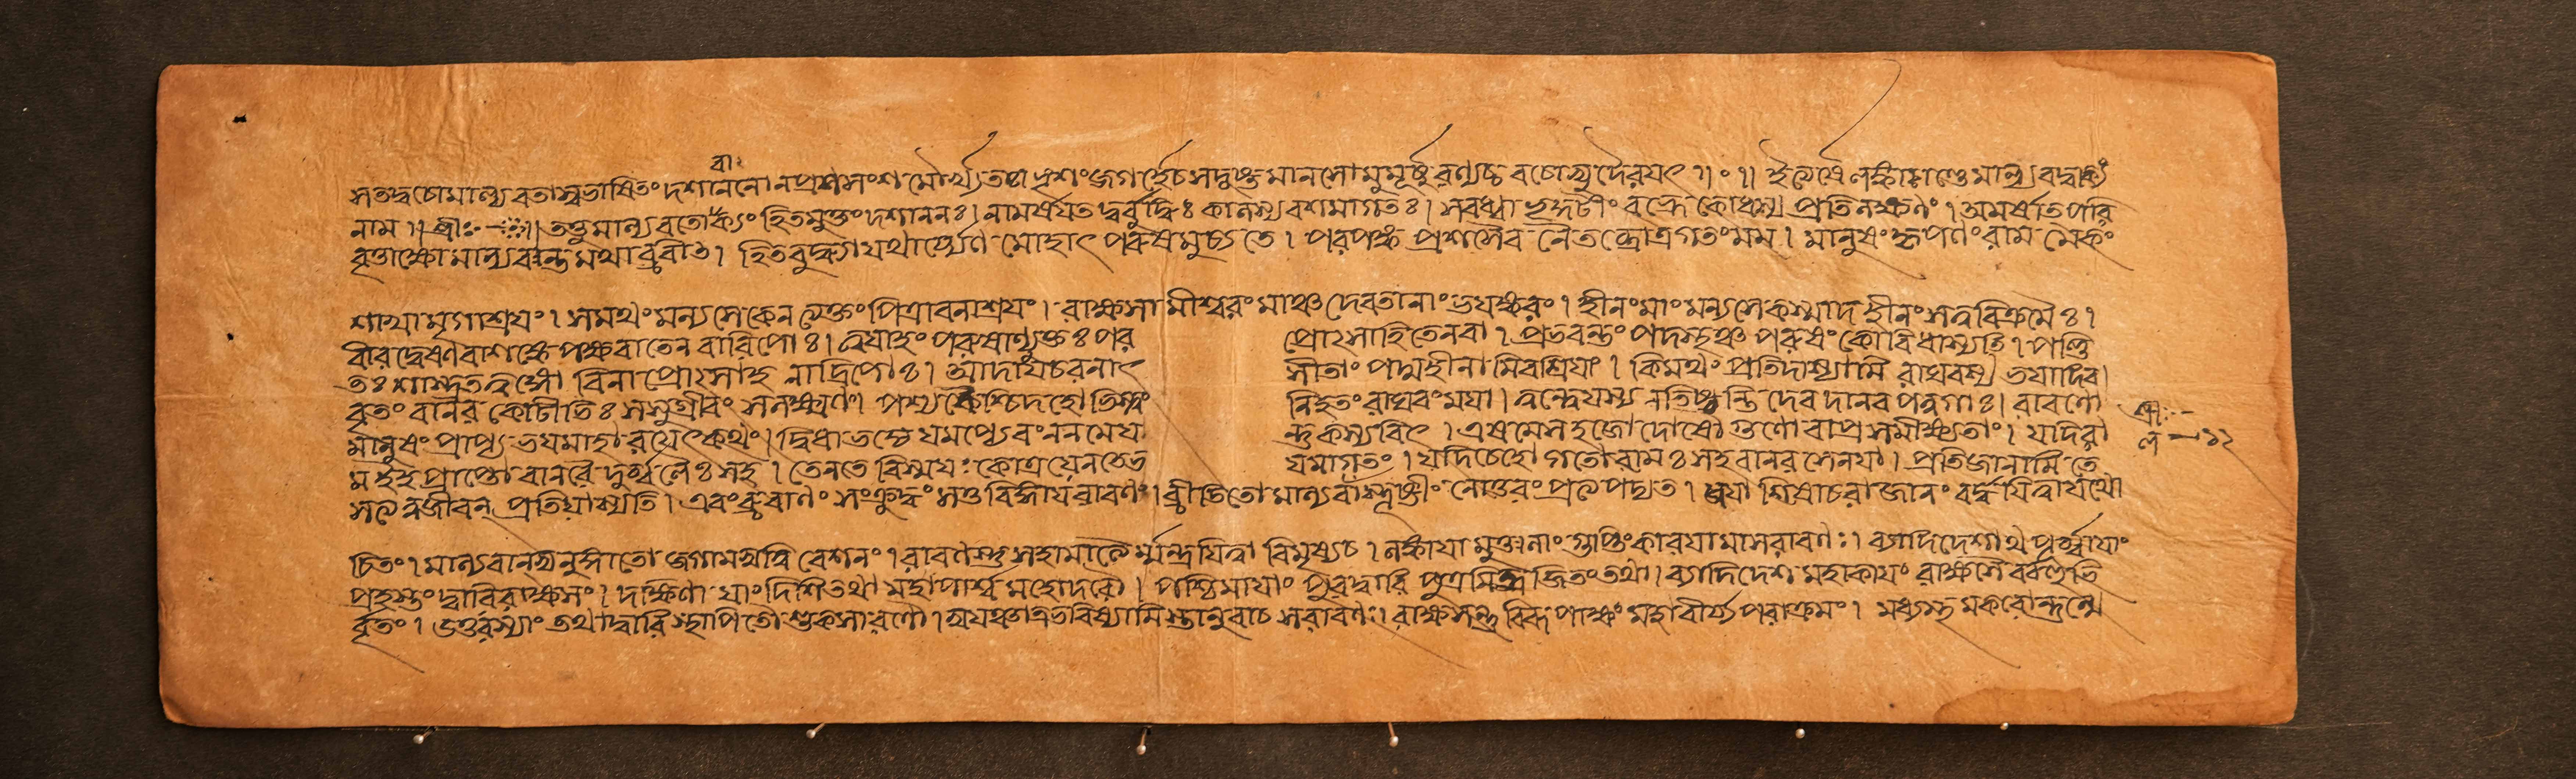 বাঃ
সতদ্বচোমাল্যবতাসুভাষিতং দশাননোনপ্রশশংস মৌর্খ্যতঃ ভৃশংজগর্হেচসদুষ্টমানসোমুমূর্ষুরণ্যচ্চ বচোভ্যুদৈরয়ৎ ॥ ০ ॥ ইত্যার্ষে লঙ্কাকাণ্ডে মাল্যবদ্বাক্যং
নাম ॥ শ্রীঃ ॥ তত্তুমাল্যবতোর্বাক্যং হিতমুক্তং দশাননঃ । নামর্ষয়ত দুর্বুদ্ধিঃ কালস্য বশমাগতঃ । সবধ্বা ভ্রূকুটীং বক্ত্রে ক্রোধস্য প্রতিলক্ষণং । অমর্ষাতপরি
বৃত্তাক্ষো মাল্যবন্তমথাব্রবীত । হিতবুদ্ধ্যা যথার্থেণ মোহাৎ পরুষমুচ্যতে । পরপক্ষ প্রশস্যৈব নৈতচ্ছ্রোত্রগতং মম । মানুষং কৃপণং রাম মেকং
শাখামৃগাশ্রয়ং । সমর্থং মন্যসেকেন ত্যক্তং পিত্রাবনাশ্রয়ং । রাক্ষসামীশ্বরং মাঞ্চ দেবতানাং ভয়ঙ্করং । হীনং মাং মন্যসেকস্মাদ হীনং সর্ব্ববিক্রমৈঃ ।
বীরদ্বেষণবাশঙ্কে পক্ষবাতেন বারিপোঃ । ত্বয়াহং পরুষাণ্যুক্তঃ পর প্রোৎসাহিতেনবা । প্রভবন্তং পদস্থঞ্চ পরুষং কোবিধাস্যতি । পণ্ডি
তঃ শাস্ত্রতত্ত্বজ্ঞো বিনা প্রোৎসাহ নাদ্রিপোঃ । আদায়চবনাৎ সীতাং পদ্মহীনামিবশ্রিয়াং । কিমর্থং প্রতিদাস্যামি রাঘবস্য ভয়াদিব ।
বৃতং বানর কোটীভিঃ সসুগ্রীবং সলক্ষ্মণং । পশ্য কৈশ্চিদহোভিস্ত্বং নিহতং রাঘবং ময়া । দ্বন্দ্বেযস্য নতিষ্ঠন্তি দেব দানব পন্নগাঃ । রাবণো
মানুষং প্রাপ্য ভয়মাহারয়েৎ কথং । দ্বিধা ভজ্যেয়মপ্যেবং ননমেয়ং ন্তু কস্যবিৎ । এষমেসহজো দোষো গুণো বাপ্রসমীক্ষ্যতাং । যদিরা
মইহ প্রাপ্তো বানরৈ দুর্ব্বলৈঃ সহ । তেনতে বিস্ময়ঃ কোত্রযেনতেভ য়মাগতং । যদিচেহো গতোরামঃ সহ বানর সেনয়া । প্রতিজানামি তে
সত্যেনজীবন্ প্রতিয়াস্যতি । এবংব্রুবাণং সংক্রুদ্ধং সতু বিজ্ঞায় রাবণং । ব্রীডিতো মাল্যবাংস্তূষ্ণীং নোত্তরং প্রত্যপদ্যত । জয়াশিষাচরাজানং বর্দ্ধয়িত্বাযথো
চিতং । মাল্যবানভ্যনুজ্ঞাতো জগামস্বনিবেশনং । রাবণস্তু সহামাত্যৈর্ম্মন্ত্রয়িত্বা বিমৃষ্যচ । লঙ্কায়ামুত্তমাং গুপ্তিং কারয়ামাসরাবণঃ । ব্যাদিদেশাথ পূর্ব্বায়াং
প্রহস্তং দ্বারিরাক্ষসং । দক্ষিণায়াং দিশিতথা মহাপার্শ্ব মহোদরৌ । পশ্চিমায়াং পুরদ্বারি পুত্রমিন্দ্রজিতং তথা । ব্যাদিদেশ মহাকায়ং রাক্ষসৈ র্বহুভি
র্বৃতং । উত্তরস্যাং তথাদ্বারি স্থাপিতৌ শুকসারণৌ । স্বয়ঞ্চাত্রভবিষ্যামি স্তানুবাচ সরাবণঃ । রাক্ষসন্তু বিরূপাক্ষং মহাবীর্য্য পরাক্রমং । মধ্যমেথ মকরোদ্গুল্মে
শ্রীঃ
ল ১২